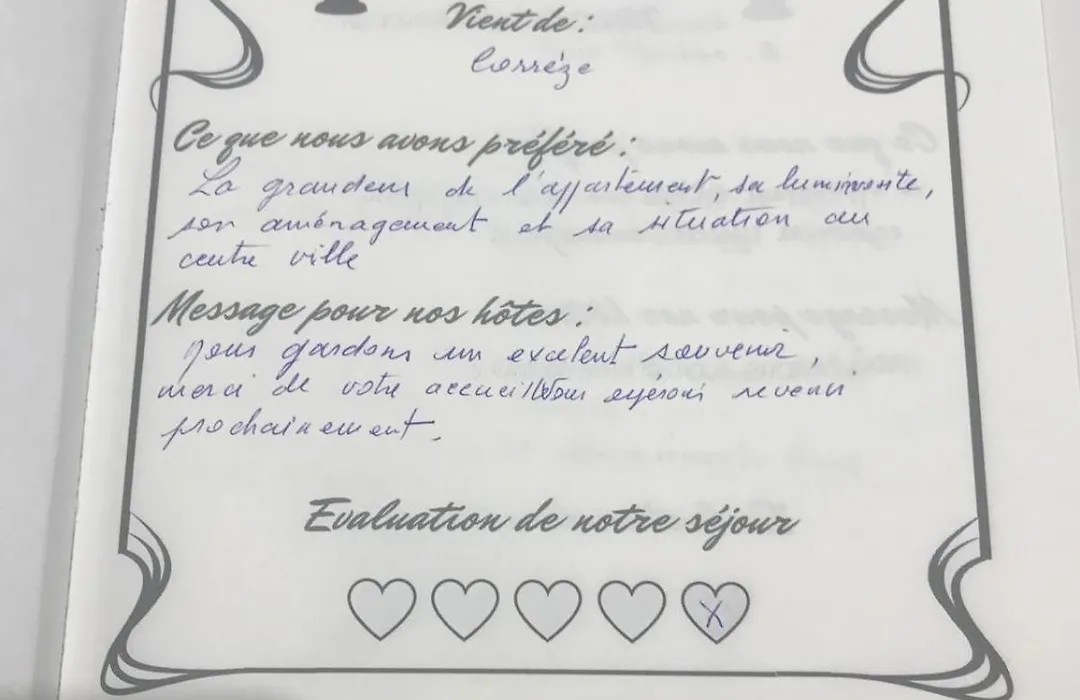 Vient de :
Corrèze
Ce que nous avons préféré :
La grandeur de l'appartement, sa luminosité,
son aménagement et sa situation au
centre ville
Message pour nos hôtes :
Nous gardons un excelent souvenir,
merci de votre accueil Nous espérons revenir
prochainement.
Evaluation de notre séjour
X